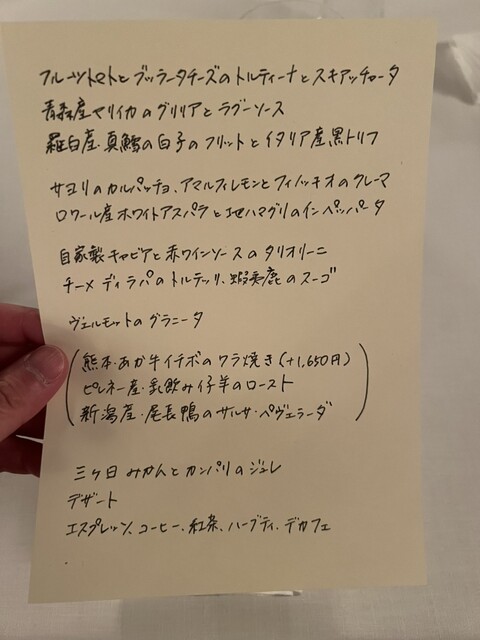 フルーツトマトとブッラータチーズのトルティーナとスキアッチャータ
青森産ヤリイカのグリリアとラグーソース
羅臼産真鱈の白子のフリットとイタリア産黒トリフ
サヨリのカルパッチョ、アマルフィレモンとフィノッキオのクレーマ
ロワール産ホワイトアスパラと地ハマグリのインペッパータ
自家製キャビアと赤ワインソースのタリオリーニ
チーメ ディ ラパのトルテッリ、蝦夷鹿のスーゴ
ヴェルモットのグラニータ
熊本・あか牛イチボのワラ焼き(+1,650円)
ピレネー産・乳飲み仔羊のロースト
新潟産・尾長鴨のサルサ・ペヴェラーダ
三ケ日みかんとカンパリのジュレ
デザート
エスプレッソ、コーヒー、紅茶、ハーブティ、デカフェ